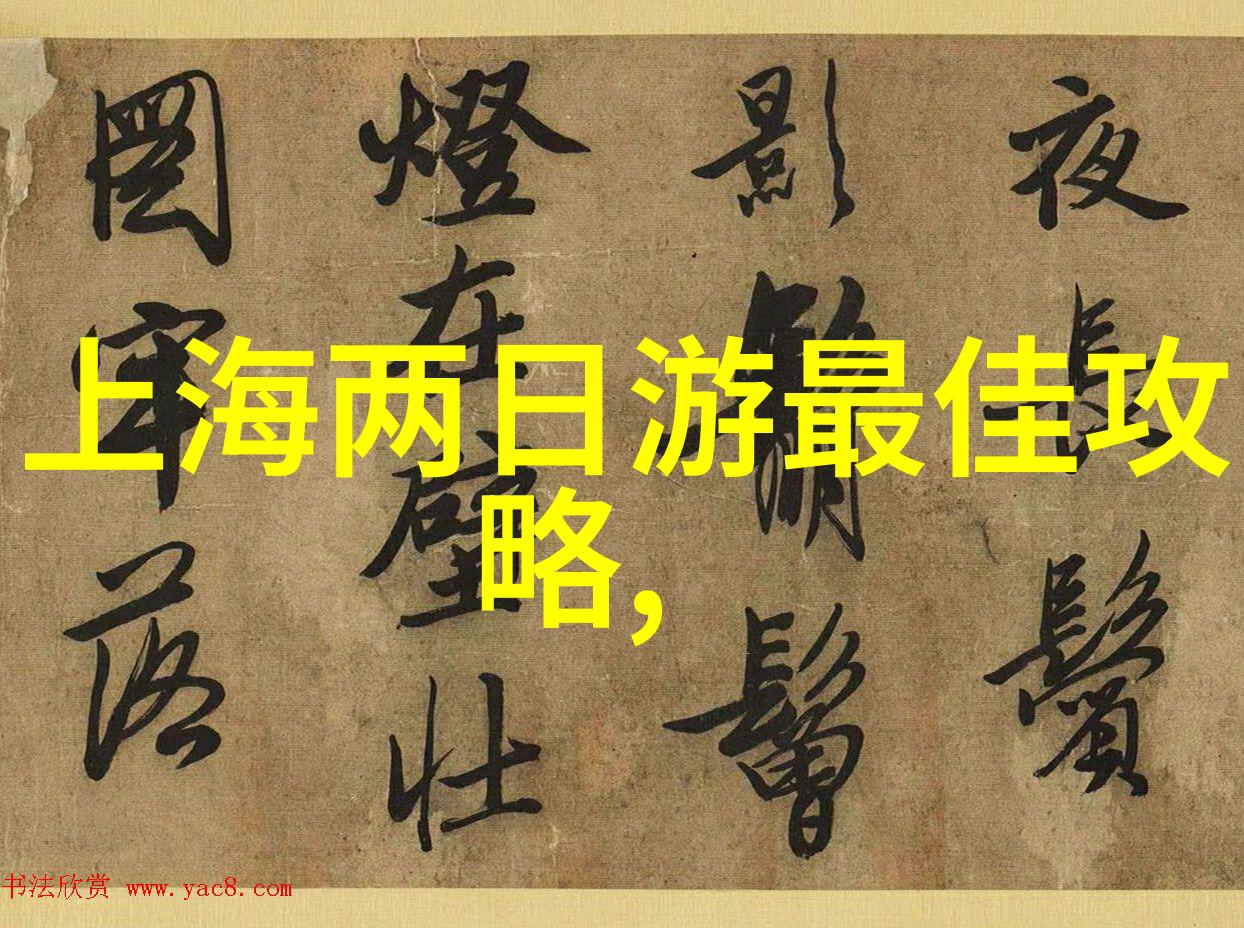 夜長鬢
影鬅鬙
燈在壁壯
圖牢落
上海两日游最佳攻
略,
书法欣赏 www.yac8.com